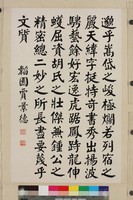 邈乎嵩岱之峻極爛若列宿之
麗天偉字挺特奇書秀出揚波
騁藝餘好宏逸虎踞鳳跱龍伸
蠖屈資胡氏之壯傑兼鍾公之
精密總二妙之所長盡要美乎
文質
韜園賈景德